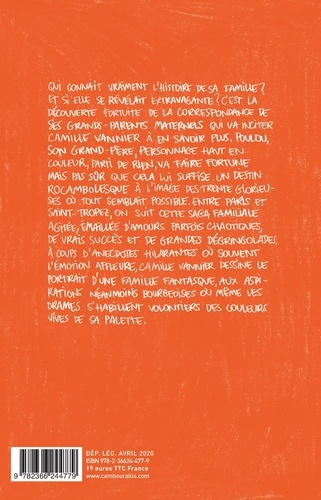 QUI CONNAÎT VRAIMENT L'HISTOIRE DE SA FAMILLE?
ET SI ELLE SE RÉVÉLAIT EXTRAVAGANTE? C'EST LA
DÉCOUVERTE FORTUITE DE LA CORRESPONDANCE
DE SES GRANDS-PARENTS MATERNELS QUI VA INCITER
CAMILLE VANNIER À EN SAVOIR PLUS. POULOU,
SON GRAND-PÈRE, PERSONNAGE HAUT EN
COULEUR, PARTI DE RIEN, VA FAIRE FORTUNE
MAIS PAS SÛR QUE CELA LUI SUFFISE. UN DESTIN
ROCAMBOLESQUE À L'IMAGE DES TRENTE GLORIEU-
SES OÙ TOUT SEMBLAIT POSSIBLE. ENTRE PARIS ET
SAINT-TROPEZ, ON SUIT CETTE SAGA FAMILIALE
AGITÉE, ÉMAILLÉE D'AMOURS PARFOIS CHAOTIQUES,
DE VRAIS SUCCÈS ET DE GRANDES DÉGRINGOLADES,
À COUPS D'ANECDOTES HILARANTES OÙ SOUVENT
L'ÉMOTION AFFLEURE, CAMILLE VANNIER DESSINE LE
PORTRAIT D'UNE FAMILLE FANTASQUE, AUX ASPI-
RATIONS NÉANMOINS BOURGEOISES OÙ MÊME LES
DRAMES S'HABILLENT VOLONTIERS DES COULEURS
VIVES DE SA PALETTE.
DÉP. LÉG. AVRIL 2020
ISBN 978-2-36624-477-9
19 euros TTC France
www.cambourakis.com
9 782366 244779